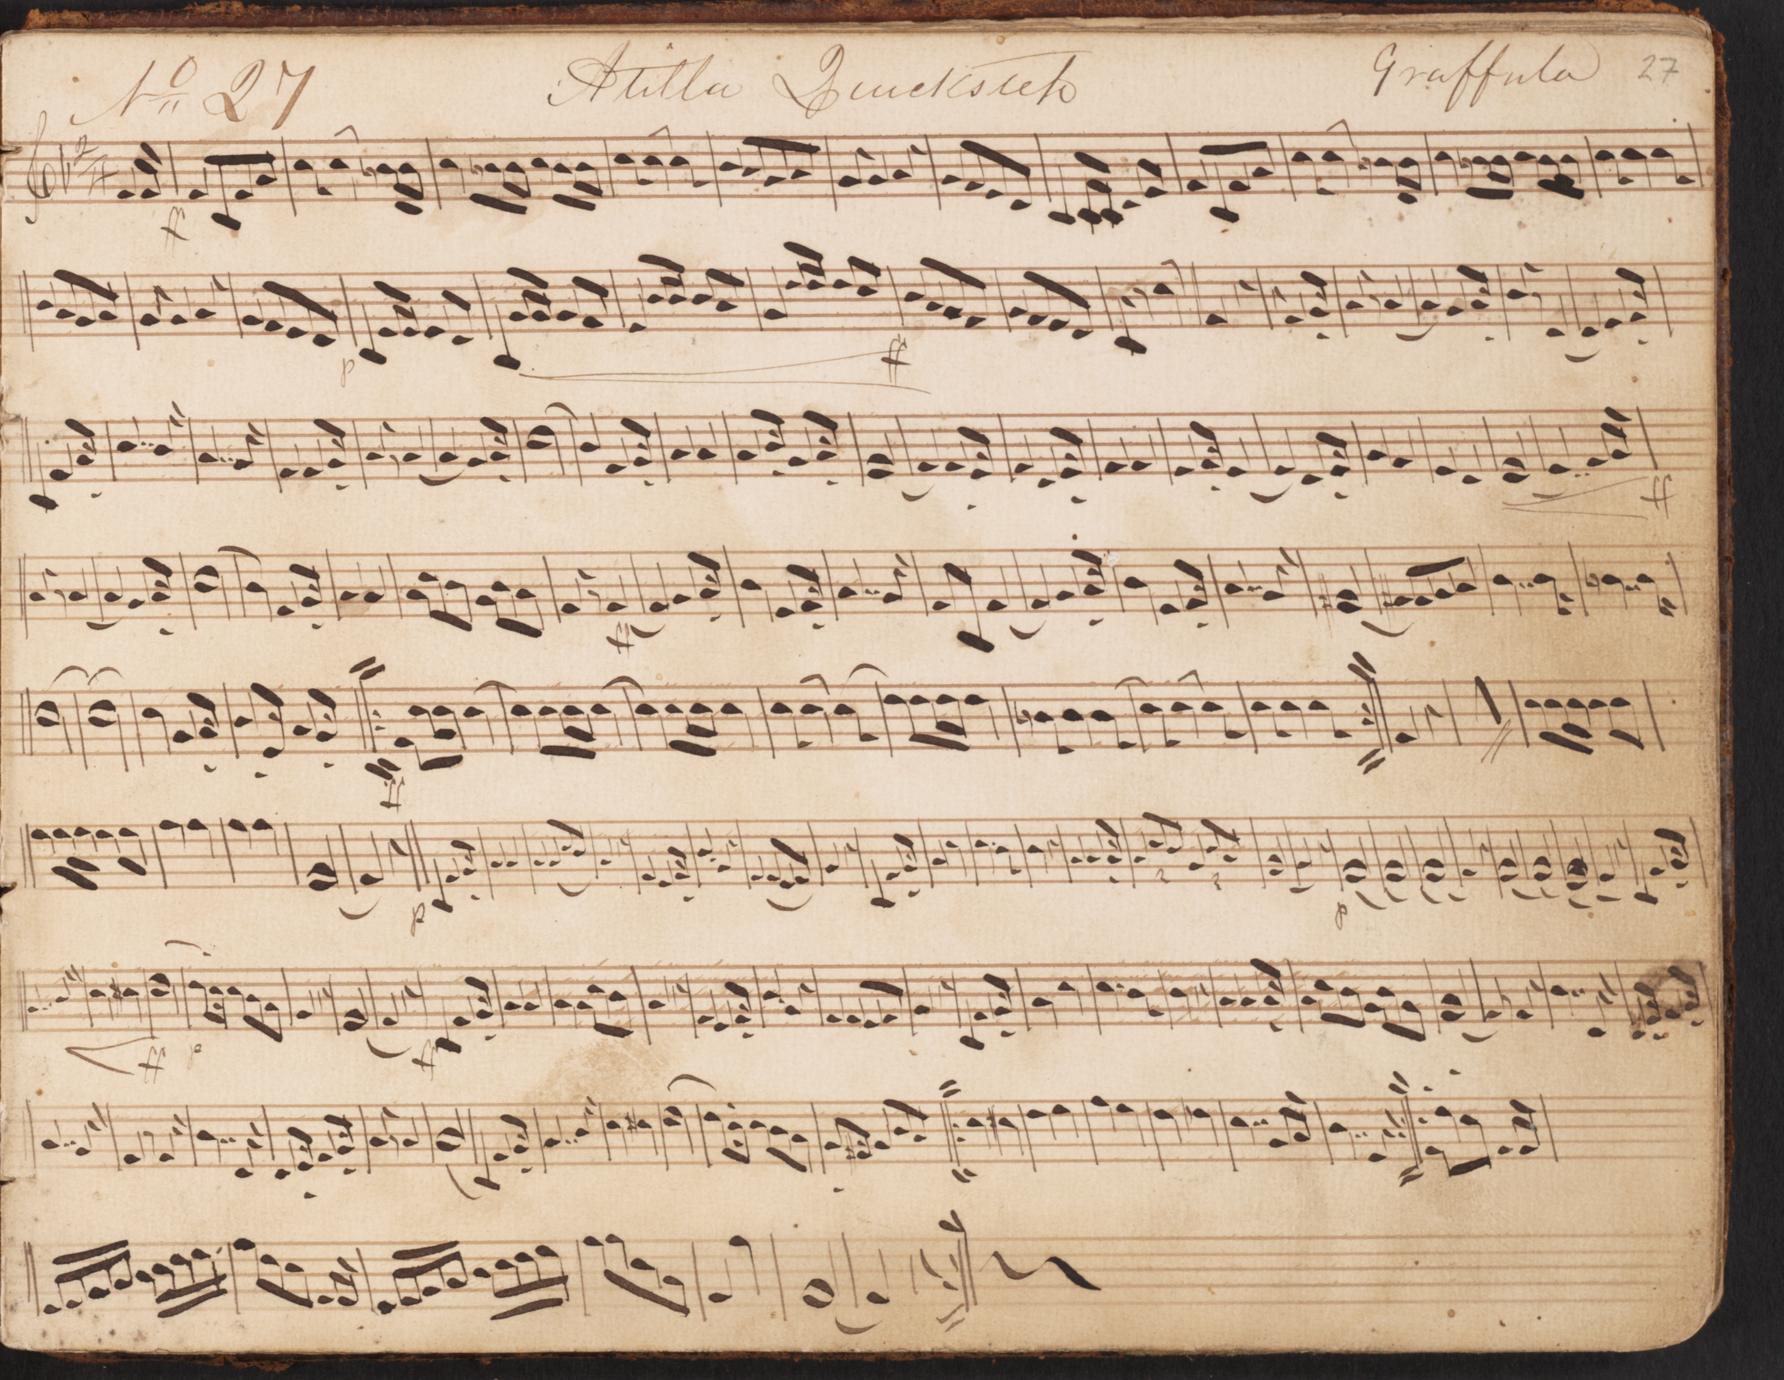 No 27 Atilla Quickstep Graffula 27
2 4
ff
p ff
ff
ff
ff
p p
ff p ff